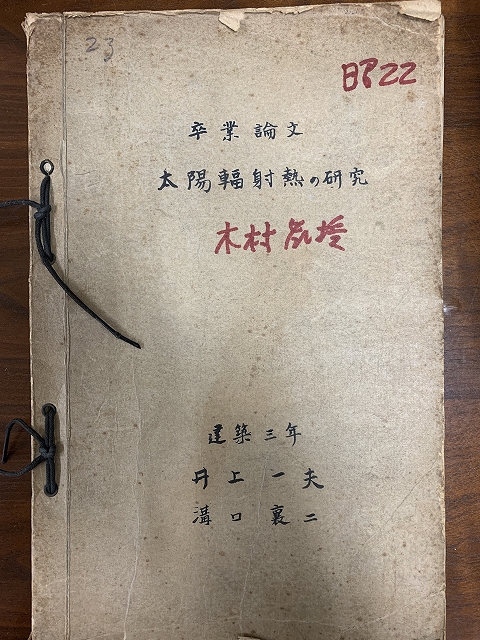 23
昭22
卒業論文
太陽輻射熱の研究
木村教授
建築三年
井上一夫
溝口襄二